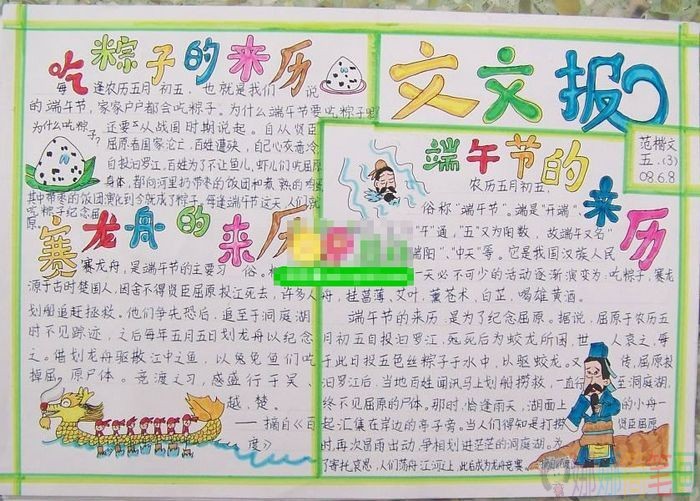 吃粽子的来历
每 逢农历五月初五，也就是我们 说
的端午节，家家户户都会吃粽子。为什么端午节要吃粽子呢
为什么吃粽子？
还要从战国时期说起。自从贤臣
屈原看国家论亡，百姓遭殃，自己
自投汩罗江。百姓为了不让鱼儿，虾儿们吃屈原
身体，都向河里扔带枣的饭团和煮熟的鸡蛋
其中带枣的饭团演化到今就成了粽子。每逢端午节这天，人们就
吃粽子纪念屈
原。
赛龙舟的来历
赛龙舟，是端午节的主要习 俗。
源于古时楚国人，因舍不得贤臣屈原投江死去，许多人
划船追赶拯救。他们争先恐后，追至于洞庭湖
时不见踪迹，之后每年五月五日划龙舟以纪念
之。借划龙舟驱散江中之鱼，以免鱼们吃
掉屈原尸体。竞渡之习，盛行于吴、
越、楚。
——摘自《百
度》
文文报
范楷文
五.(3)
08.6.8
端午节的来历
农历五月初五，
俗称“端午节”。端是“开端”
“午”通，“五”又为阳数，故端午又名“
端阳”、“中天”等。它是我国汉族人民
一天必不可少的活动逐渐演变为：吃粽子，赛龙
舟，挂菖蒲、艾叶，薰苍术、白芷，喝雄黄酒。
端午节的来历，是为了纪念屈原。据说，屈原于农历五
月初五自投汩罗江，死后为蛟龙所困，世 人哀之，每
于此日投五色丝粽子于水中，以驱蛟龙。又 传，屈原投
汩罗江后，当地百姓闻汛马上划船捞救，一直行 至洞庭湖，
终不见屈原的尸体。那时，恰逢雨天，湖面上 的小舟一
起汇集在岸边的亭子旁。当人们得知是打捞 贤臣屈原
时，再次冒雨出动，争相划进茫茫的洞庭湖。为
了寄托哀思，人们荡舟江河上，此后成为龙舟竞赛。